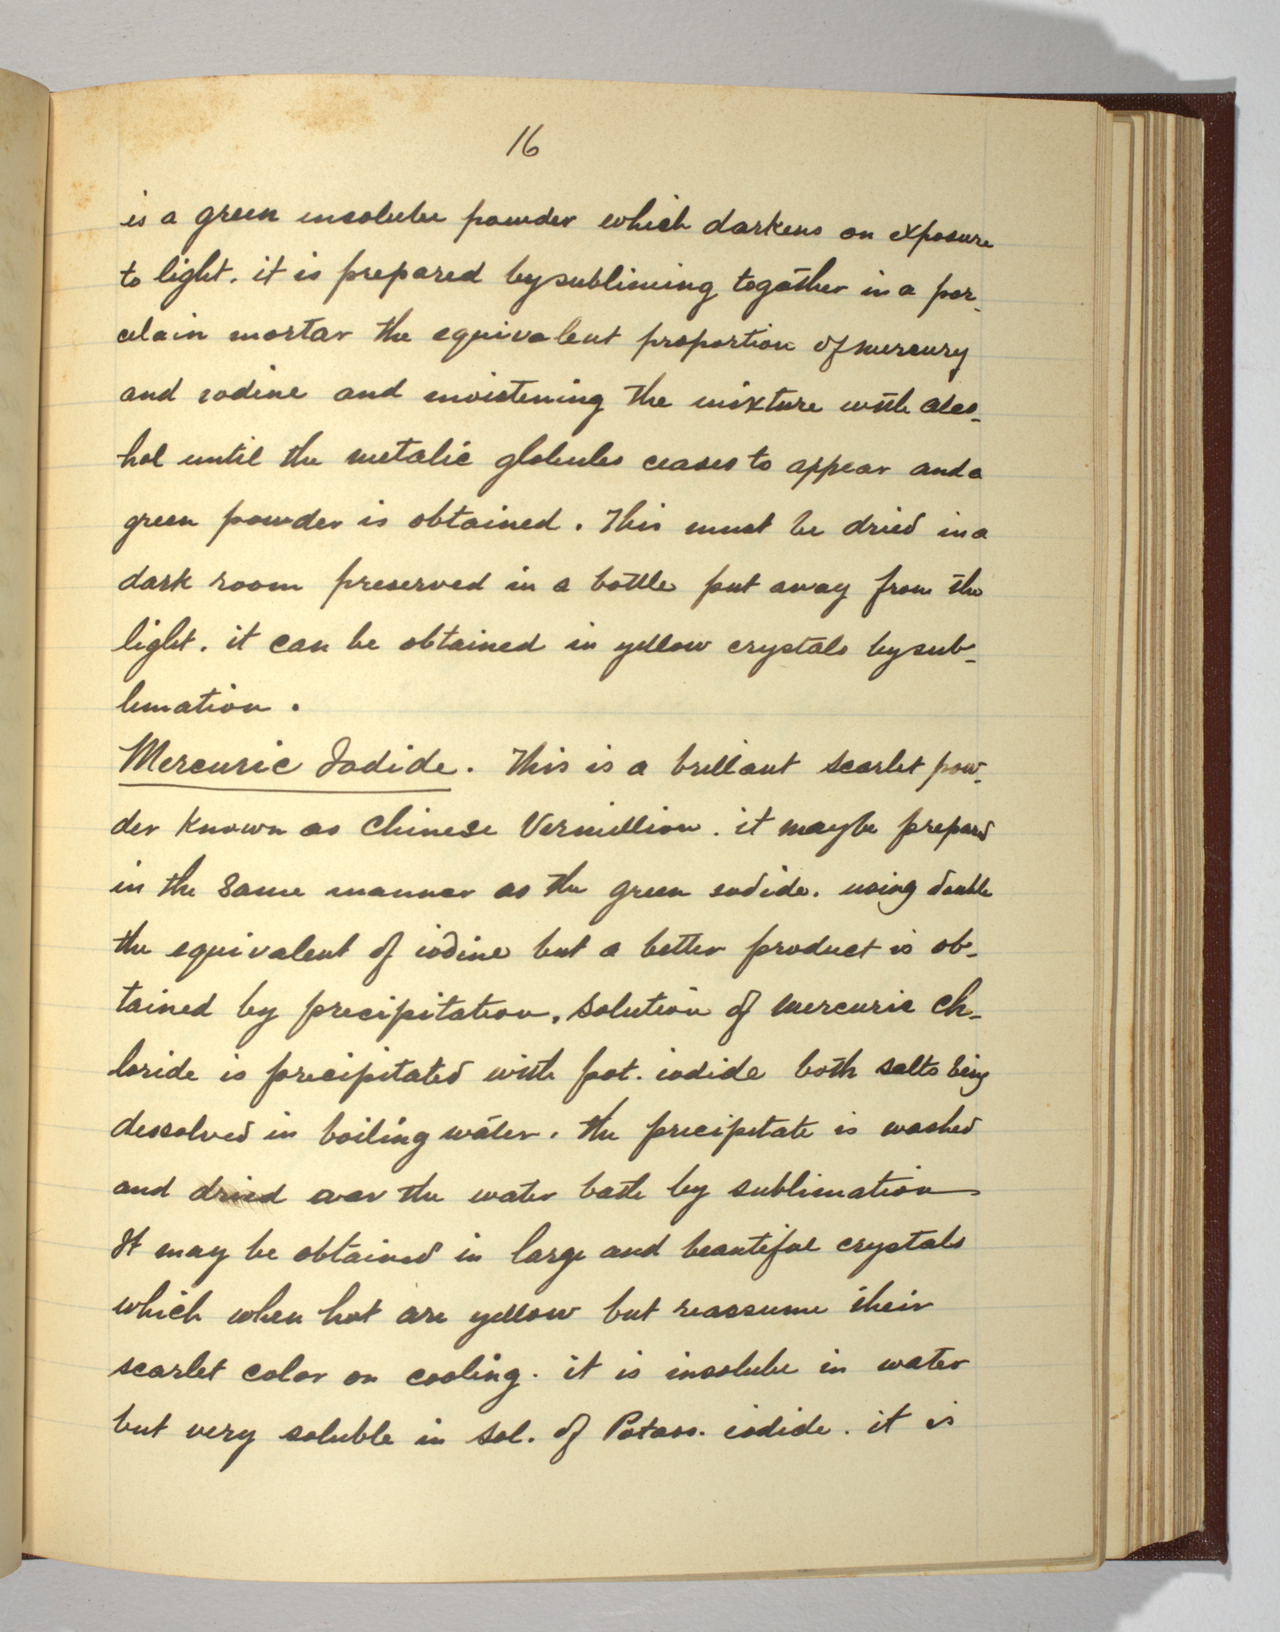 16
is a green insoluble powder which darkens on exposure
to light. it is prepared by subliming together in a por-
celain mortar the equivalent proportion of mercury
and iodine and moistening the mixture with alco-
hol until the metalic globules ceases to appear and a
green powder is obtained. This must be dried in a
dark room preserved in a bottle put away from the
light. it can be obtained in yellow crystals by sub-
limation.
Mercuric Iodide. This is a brillant scarlet pow-
der known as Chinese Vermillion. it maybe prepard
in the same manner as the green iodide. using double
the equivalent of iodine but a better product is ob-
tained by precipitation, solution of mercuric ch-
loride is precipitated with pot. iodide both salts being
dessolved in boiling water. the precipitate is washed
and dried over the water bath by sublimation
It may be obtained in large and beautiful crystals
which when hot are yellow but reassume their
scarlet color on cooling. it is insoluble in water
but very soluble in sol. of Potass. iodide. it is